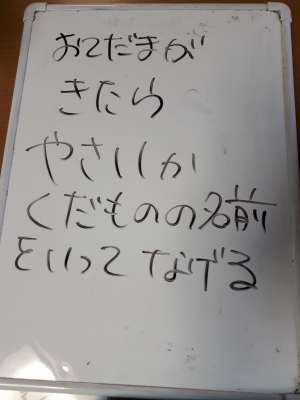 おてだまが
きたら
やさいか
くだものの名前
をいってなげる